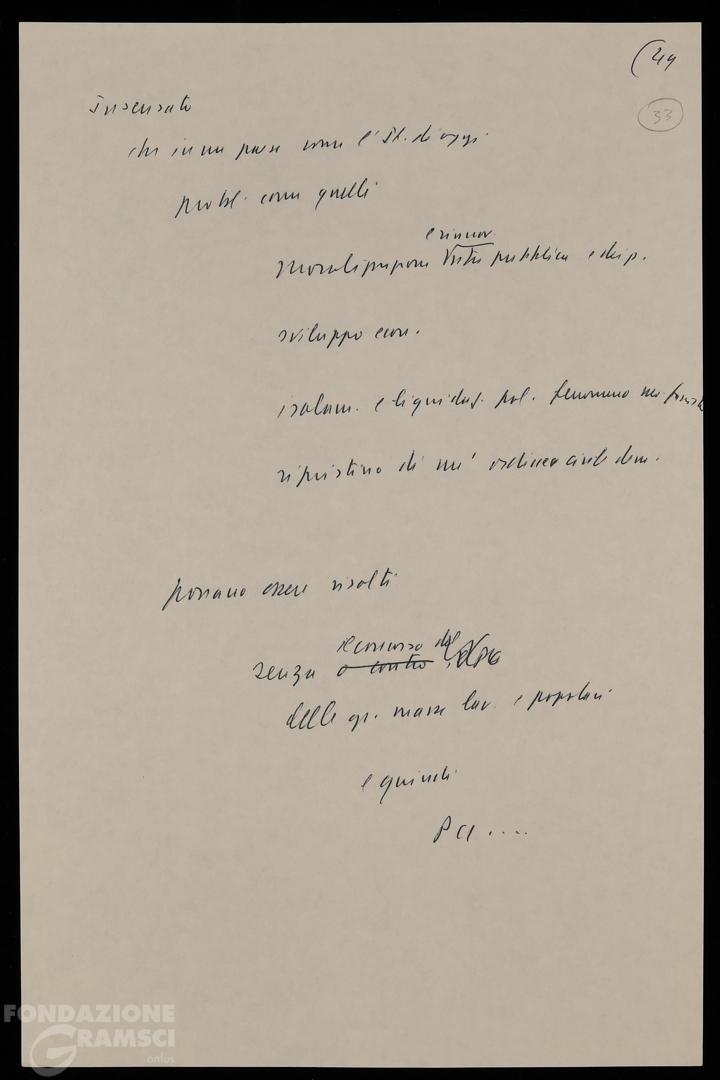 (49
33
Insensato
che in un paese come l'It. di oggi
probl. come quelli
e rinnov.
vita pubblica e dei p.
sviluppo econ.
isolam. e liquidaz. pol. fenomeno
ripristino di un' civile dem.
possano essere risolti
il concorso del
senza o contro
delle gr. masse lav. e popolari
e quindi
PCI ....
FONDAZIONE
GRAMSCI
onlus